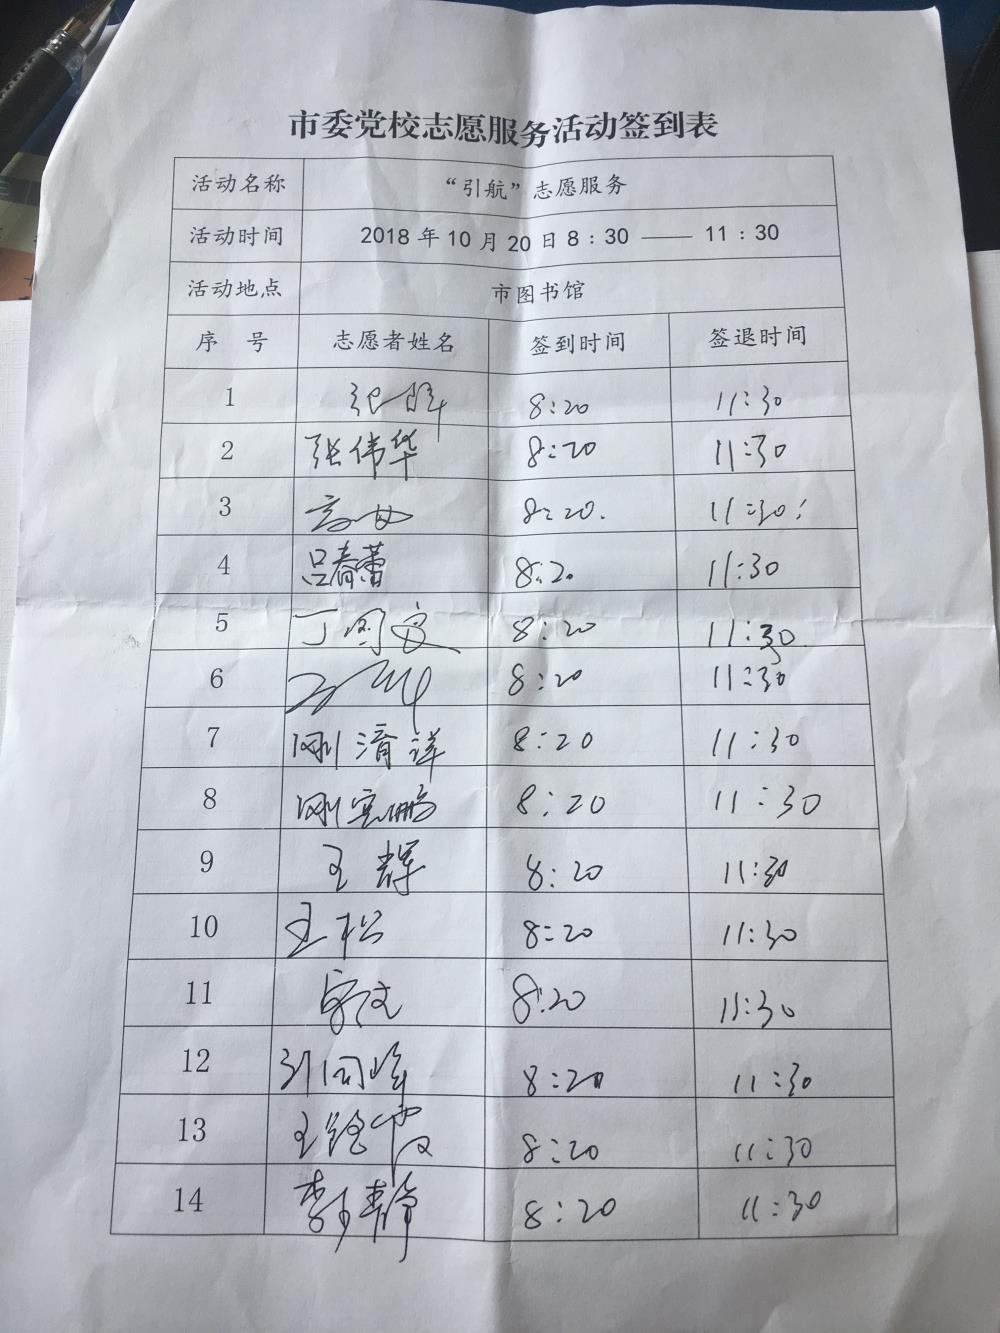 市委党校志愿服务活动签到表
活动名称 “引航”志愿服务
活动时间 2018年10月20日8:30——11:30
活动地点 市图书馆
序 号 志愿者姓名 签到时间 签退时间
1 8:20 11:30
2 张伟华 8:20 11:30
3 8:20. 11:30
4 吕春蕾 8:20 11:30
5 丁 8:20 11:30
6 8:20 11:30
7 刚清详 8:20 11:30
8 刚宪鹏 8:20 11:30
9 王辉 8:20 11:30
10 王松 8:20 11:30
11 8:20 11:30
12 刘国峰 8:20 11:30
13 王 8:20 11:30
14 李 静 8:20 11:30